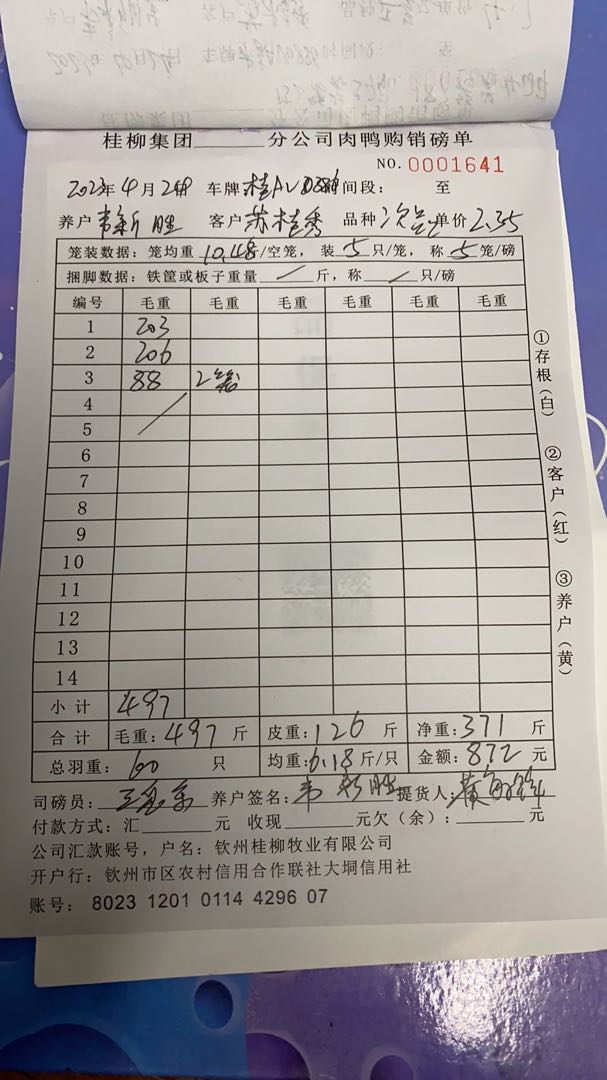 桂柳集团______分公司肉鸭购销磅单
NO. 0001641
2023年4月2 日 车牌 桂A 间段: 至
养户 韦新胜 客户 苏桂秀 品种 次 单价 2.35
笼装数据: 笼均重 10.48/空笼, 装 5 只/笼, 称 5 笼/磅
捆脚数据: 铁筐或板子重量 / 斤, 称 / 只/磅
编号 毛重 毛重 毛重 毛重 毛重 毛重
1 203
2 206
3 88 2笼
4
5
6
7
8
9
10
11
12
13
14
小计 497
合计 毛重: 497 斤 皮重: 126 斤 净重: 371 斤
总羽重: 60 只 均重: 6.18 斤/只 金额: 872 元
司磅员: 养户签名: 韦新胜 提货人: 黄
付款方式: 汇______元 收现______元欠(余): ______元
公司汇款账号, 户名: 钦州桂柳牧业有限公司
开户行: 钦州市区农村信用合作联社大垌信用社
账号: 8023 1201 0114 4296 07
①存根(白)
②客户(红)
③养户(黄)